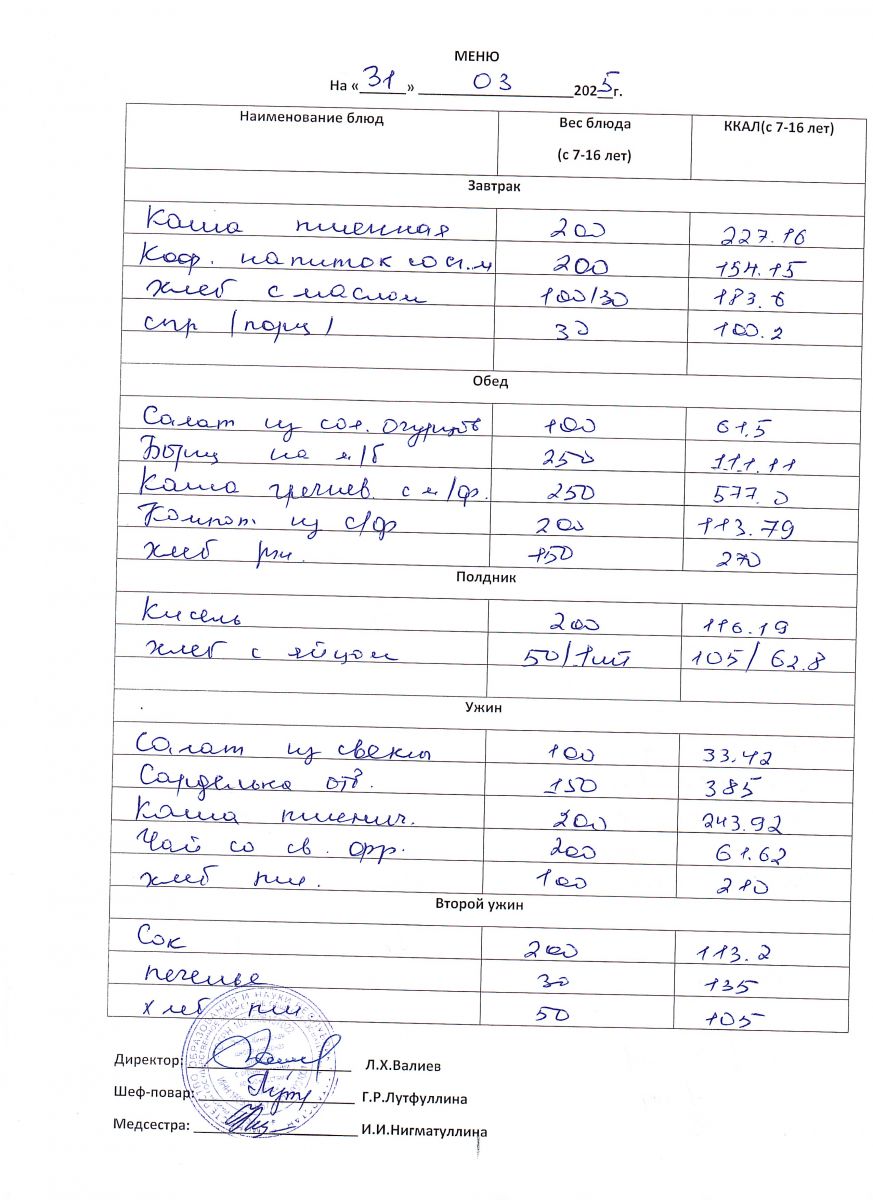 МЕНЮ
На « 31 » 03 2025 г.
Наименование блюд Вес блюда (с 7-16 лет) ККАЛ(с 7-16 лет)
Завтрак
Каша пшенная 200 227.16
Коф. напиток со сг.м 200 154.15
хлеб с маслом 100/30 183.6
сыр (порц) 30 100.2
Обед
Салат из сол. огурцов 100 61,5
Борщ на м/б 250 111.11
Каша гречнев. с м/ф. 250 577.0
Компот из с/ф 200 113.79
хлеб рж. 150 270
Полдник
Кисель 200 116.19
хлеб с яйцом 50/1шт 105/62.8
Ужин
Салат из свеклы 100 33.42
Сарделька отв. 150 385
Каша пшенич. 200 243.92
Чай со св. фр. 200 61.62
хлеб пш. 100 210
Второй ужин
Сок 200 113.2
печенье 30 135
хлеб пш 50 105
Директор: Л.Х.Валиев
Шеф-повар: Г.Р.Лутфуллина
Медсестра: И.И.Нигматуллина